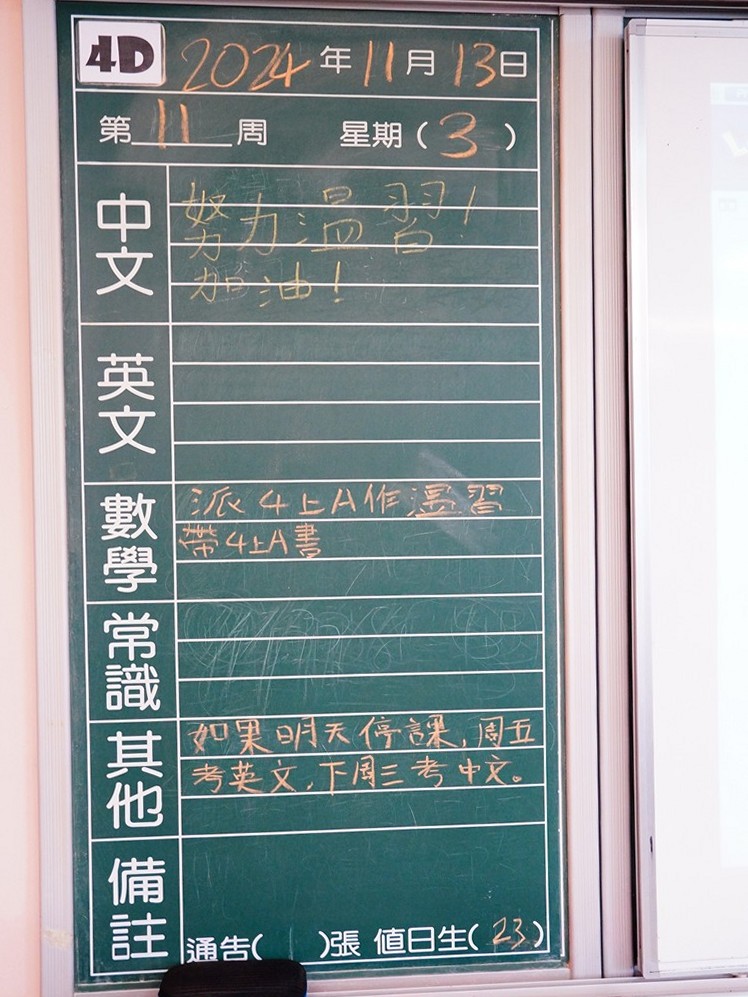 4D 2024年11月13日
第11周 星期(3)
中文
努力溫習!
加油!
英文
數學
派4上A作溫習
帶4上A書
常識
其他
如果明天停課,周五
考英文,下周三考中文。
備註
通告( )張 值日生(23)